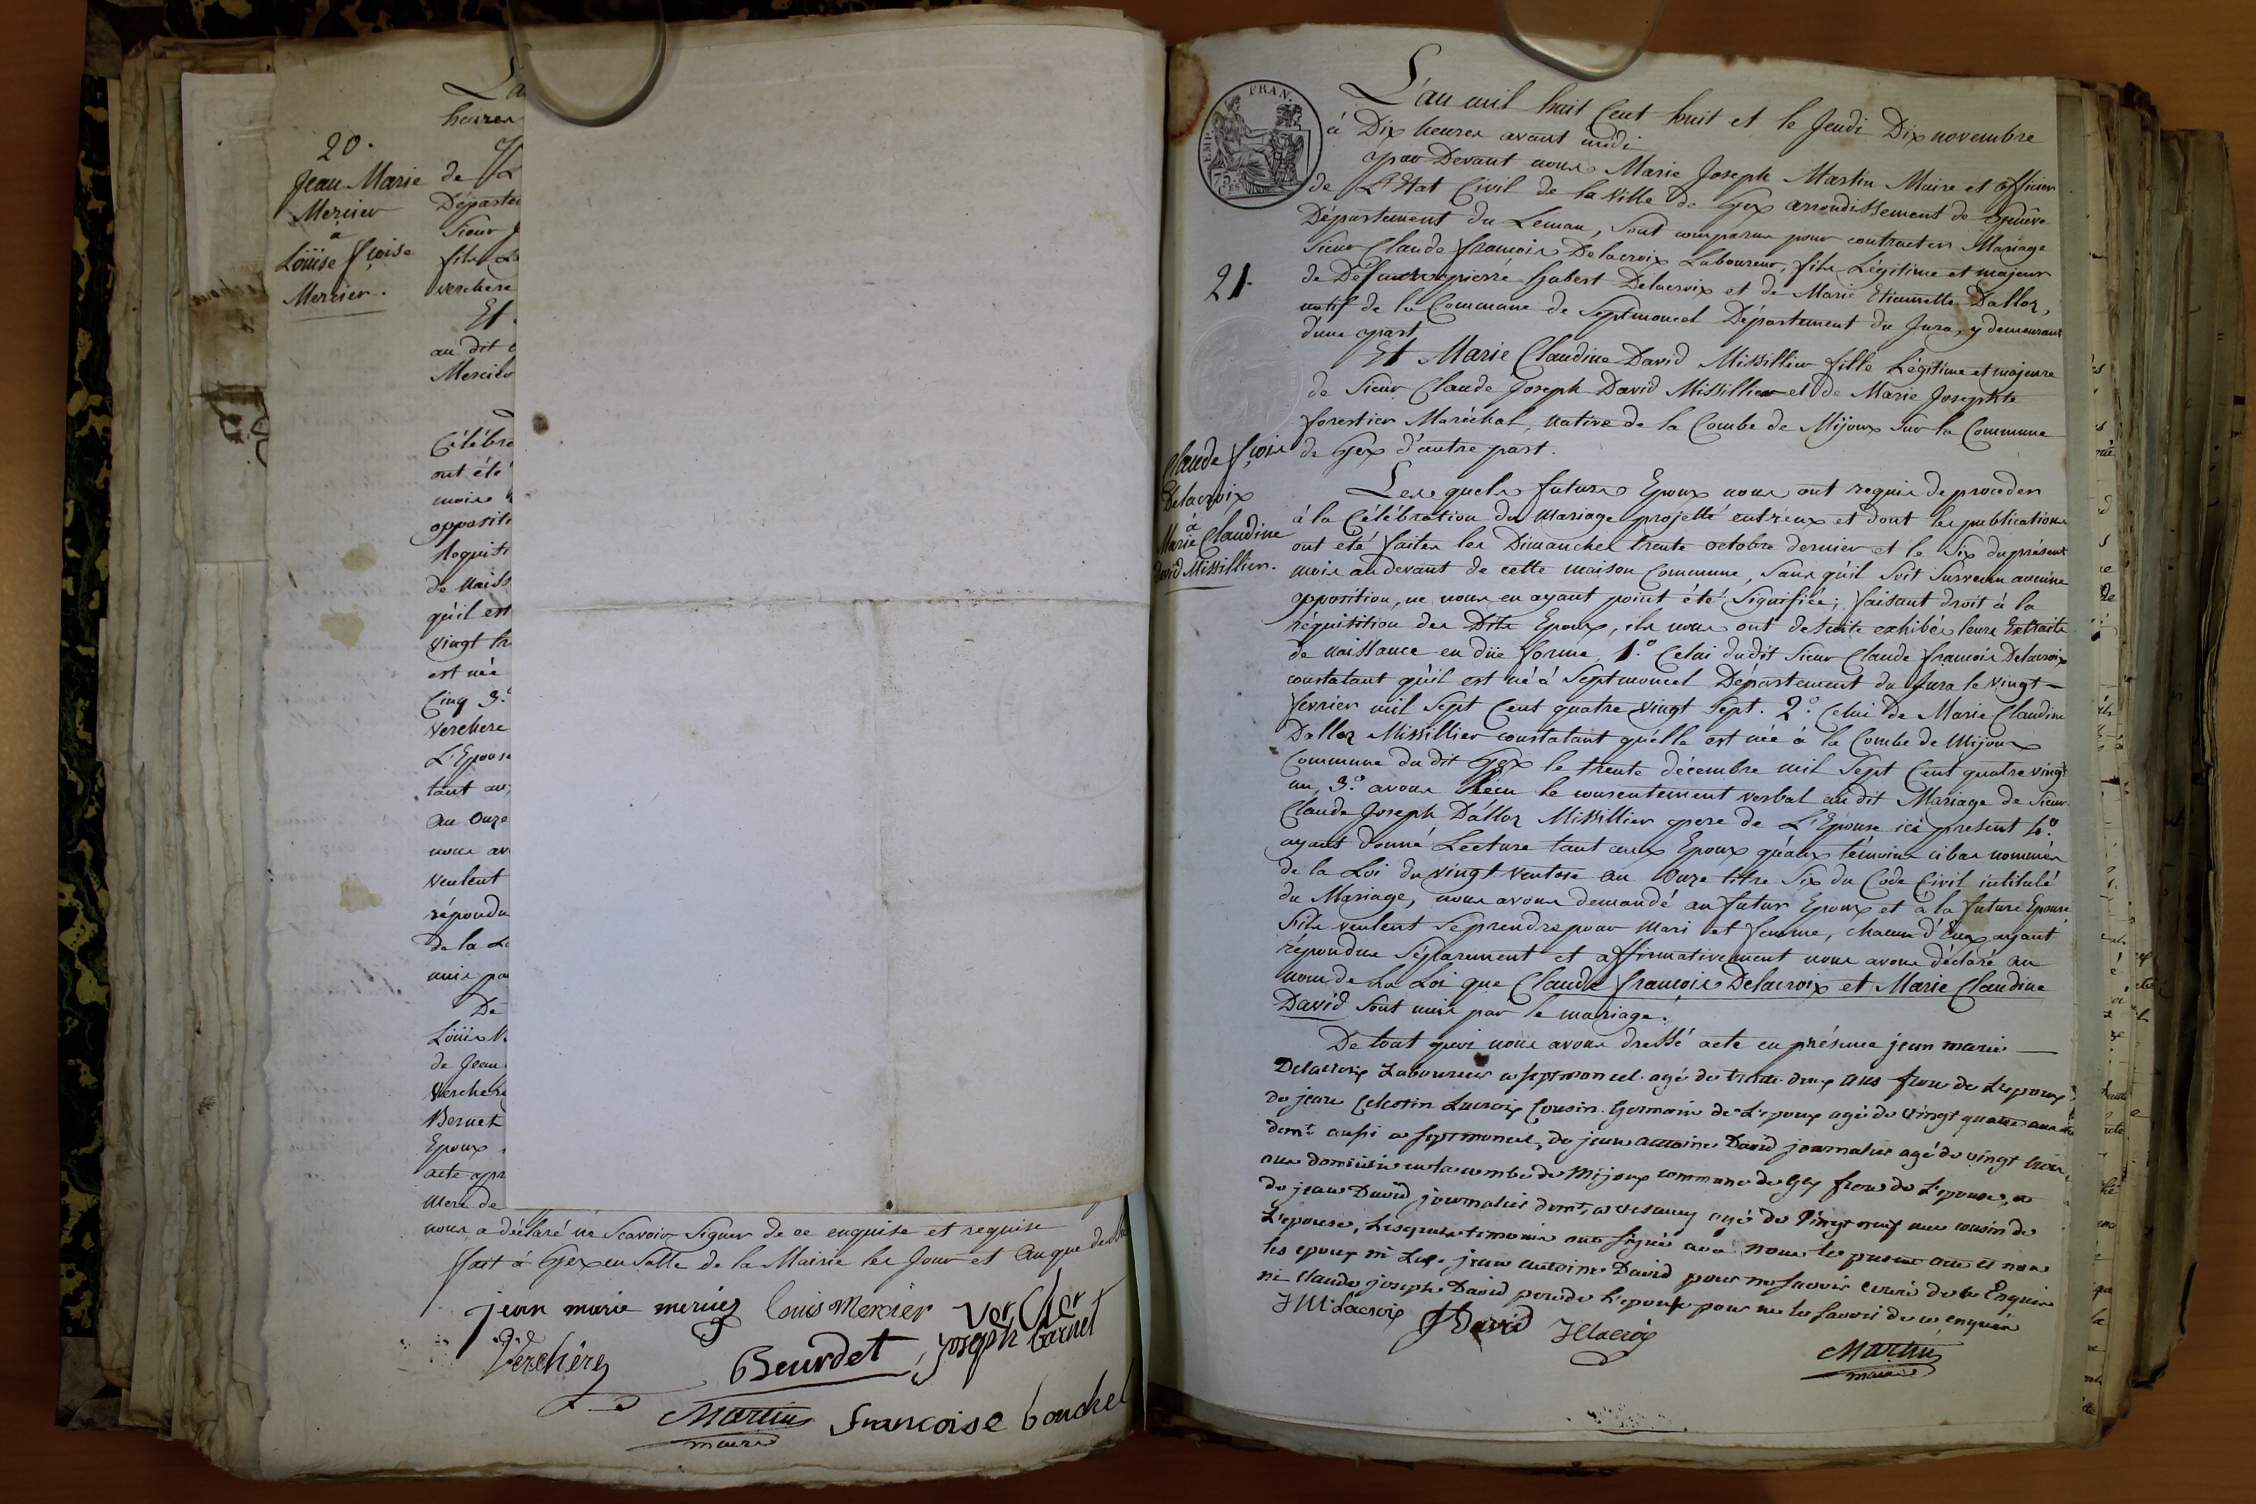 20.
Jean Marie
Mercier
a
Loüise fçoise
Mercier.
heures
de
Départe
Sieur
fils
verchere
Et
au dit
Mercier
Célébra
ont été
mois
oppositi
Requisi
de naiss
qu'il est
vingt
est née
Cinq 3.°
Verchere
L'Epouse
tant au
au Onze
nous av
veulent
répondu
de la
unis pa
De
Loüis
de Jean
Verchere
Bernet
Epoux
acte
mere de
nous a déclaré ne Scavoir Signer de ce enquise et requise
fait à Gex en Salle de la Mairie les Jour et An que dessus
jean marie mercier Louis Mercier
Verchere
Beurdet joseph barnet
Martin francoise bouchel
maire
EMP. FRAN.
75 CES
L'an mil huit Cent huit et le Jeudi Dix novembre
à Dix heures avant midi
par Devant nous Marie Joseph Martin Maire et officier
de L'Etat Civil de la Ville de Gex arrondissement de Genêve
Département du Leman, Sont comparus pour contracter Mariage
Sieur Claude françois Delacroix Laboureur, fils Légitime et majeur
21.
de Deffunt pierre hubert Delacroix et de Marie Etiennette Dalloz,
natif de la Commune de Septmoncel Département du Jura, y demeurant
d'une part
Et Marie Claudine David Missillier fille Légitime et majeure
de Sieur Claude Joseph David Missillier et de Marie Josephte
forestier Maréchal, native de la Combe de Mijoux Sur la Commune
de Gex d'autre part.
Claude fçois
Delacroix
à
Marie Claudine
David Missillier.
Lesquels futurs Epoux nous ont requis de proceder
à la Célébration du Mariage projetté entr'eux et dont les publications
ont été faites les Dimanches trente octobre dernier et le Six du présent
mois au devant de cette maison Commune, Sans qu'il Soit Survenu aucune
opposition, ne nous en ayant point été Signifiée; faisant droit à la
réquisition des Dits Epoux, ils nous ont de suite exhibés leurs Extraits
de naissance en düe forme, 1.° Celui du dit Sieur Claude francois Delacroix
constatant qu'il est né à Septmoncel Département du Jura le vingt
fevrier mil Sept Cent quatre vingt Sept. 2.° Celui de Marie Claudine
Dalloz Missillier constatant qu'elle est née à la Combe de Mijoux
Commune du dit Gex le trente décembre mil Sept Cent quatre vingt
un, 3.° avons Récu le consentement verbal au dit Mariage de Sieur
Claude Joseph Dalloz Missillier pere de L'Epouse ici présent 4.°
ayant donné Lecture tant aux Epoux qu'aux témoins ci bas nommés
de la Loi du vingt Ventose an Onze titre Six du Code Civil intitulé
du Mariage, nous avons demandé au futur Epoux et à la future Epouse
S'ils veulent Se prendre pour Mari et femme, chacun d'Eux ayant
répondu Séparement et affirmativement nous avons déclaré au
nom de La Loi que Claude françois Delacroix et Marie Claudine
David Sont unis par le mariage.
De tout quoi nous avons dressé acte en présence jean marie
Delacroix Laboureur a septmoncel agé de trente deux ans frere de Lepoux
de jean Celestin Lacroix Cousin Germain de L'epoux agé de vingt quatre ans
demt. aussi a septmoncel, de jean antoine David journalier agé de vingt trois
ans domicilié en la combe de Mijoux commune de Gex frere de L'epouse, et
de jean David journalier demt. a vesancy agé de vingt neuf ans cousin de
L'epouse, Lesquels temoins ont signé avec nous le present acte et non
les epoux ni Led. jean antoine David pour ne savoir ecrire de ce Enquis
ni Claude joseph David pere de L'epouse pour ne les savoir de ce enquis
J M Lacroix JDavid JClacroix
Martin
maire